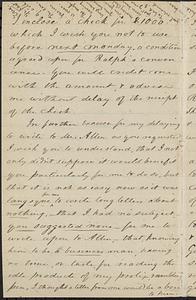 I enclose a check for $1000
which I wish you not to use
before next monday, a condition
agreed upon for Ralph's conven
ience. You will credit me
with the amount, & advise
me without delay of the receipt
of the check.
In further excuse for my delaying
to write to Mr Allen as you requested
I wish you to understand, that I not
only did not suppose it would benefit
you particularly for me to do so, but
that it is not as easy now as it was
lang syne, to write long letters about
nothing, that I had no subject,
you suggested none, for me to
write upon to Allen, that knowing
him to be a business man, having
no time, or taste, for reading the
idle products of my prolix rambling
pen, I thought a letter from me would be a bore